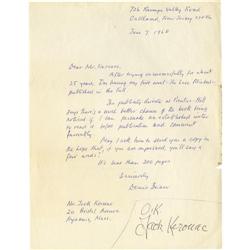 726 Ramapo Valley Road
Oakland, New Jersey
June 7, 1968
Dear Mr. Kerouac,
After trying unsuccessfully for about
25 years, I'm having my first novel - The Love-Minded -
published in the Fall.
The publicity director at Prentice-Hall
says there's a much better chance of the book being
noticed if I can persuade an established writer
to read it before publication and comment
favorably.
May I ask him to send you a copy in
the hope that, if you are impressed, you'll say a
few words?
It's less than 200 pages.
Sincerely,
Dennis
Mr. Jack Kerouac
20 Bristol Avenue
Hyannis, Mass.
O.K.
Jack Kerouac